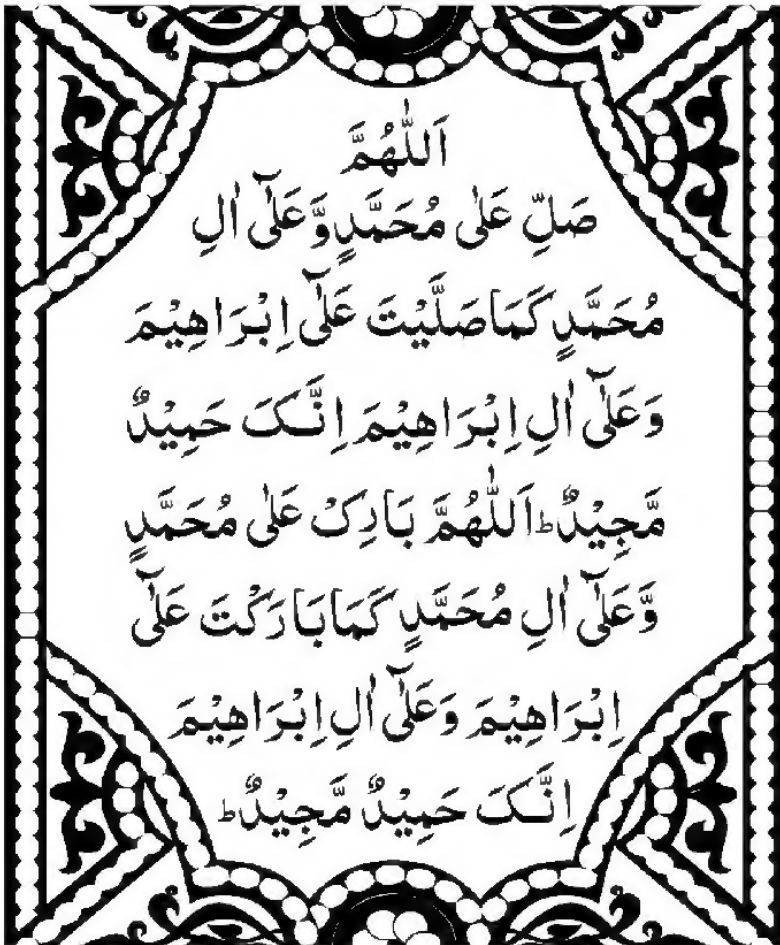 اَللّٰهُمَّ
صَلِّ عَلٰی مُحَمَّدٍ وَّعَلٰۤی اٰلِ
مُحَمَّدٍ کَمَا صَلَّیْتَ عَلٰۤی اِبْرَاهِیْمَ
وَعَلٰۤی اٰلِ اِبْرَاهِیْمَ اِنَّکَ حَمِیْدٌ
مَّجِیْدٌ ؕ اَللّٰهُمَّ بَارِکْ عَلٰی مُحَمَّدٍ
وَّعَلٰۤی اٰلِ مُحَمَّدٍ کَمَا بَارَکْتَ عَلٰۤی
اِبْرَاهِیْمَ وَعَلٰۤی اٰلِ اِبْرَاهِیْمَ
اِنَّکَ حَمِیْدٌ مَّجِیْدٌ ؕ